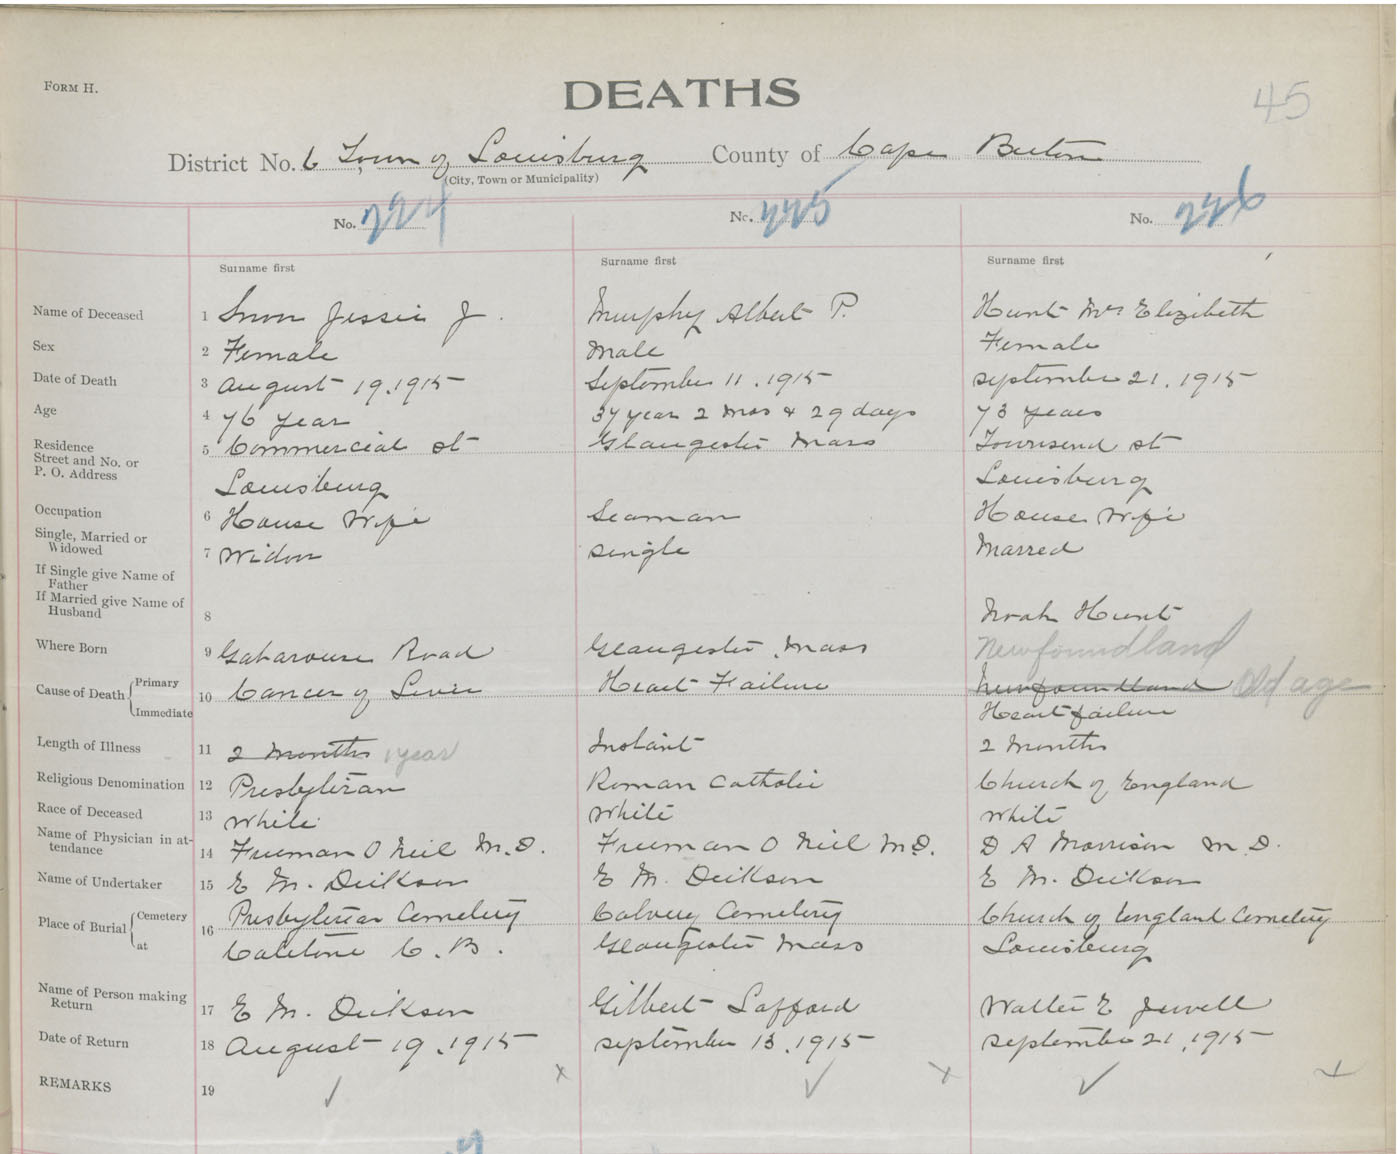 FORM H.
DEATHS
45
District No. 6 Town of Louisburg County of Cape Breton
(City, Town or Municipality)
No. 224 No. 225 No. 226
Surname first Surname first Surname first
Name of Deceased 1 Jessie J. Murphy Albert P. Hunt Mrs Elizibeth
Sex 2 Female Male Female
Date of Death 3 August 19, 1915 September 11, 1915 September 21, 1915
Age 4 76 year 37 year 2 mos & 29 days 73 years
Residence
Street and No. or 5 Commercial st Glaugester Mass Townsend st
P. O. Address
Louisburg Louisburg
Occupation 6 House Wife Seaman House Wife
Single, Married or
Widowed 7 Widow Single Marred
If Single give Name of
Father
If Married give Name of
Husband 8 Noah Hunt
Where Born 9 Gabarouse Road Glaugester, Mass Newfoundland
Cause of Death Primary 10 Cancer of Liver Heart Failure Newfoundland Old age
Immediate Heart failure
Length of Illness 11 2 Months 1 year Instant 2 Months
Religious Denomination 12 Presbyterian Roman Catholic Church of England
Race of Deceased 13 White White White
Name of Physician in at-
tendance 14 Freeman O Neil M.D. Freeman O Neil M.D. D A Morrison M.D.
Name of Undertaker 15 E M. Dickson E M. Dickson E M. Dickson
Place of Burial Cemetery 16 Presbyterian Cemetery Calvery Cemetery Church of England Cemetery
at Catalone C.B. Glaugester Mass Louisburg
Name of Person making
Return 17 E M. Dickson Gilbert Lafford Walter E Jewell
Date of Return 18 August 19, 1915 September 13, 1915 September 21, 1915
REMARKS 19